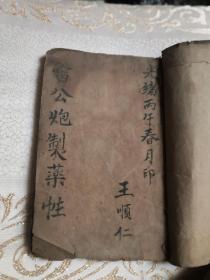 光緒丙午春月印
雷公炮製藥性
王順仁